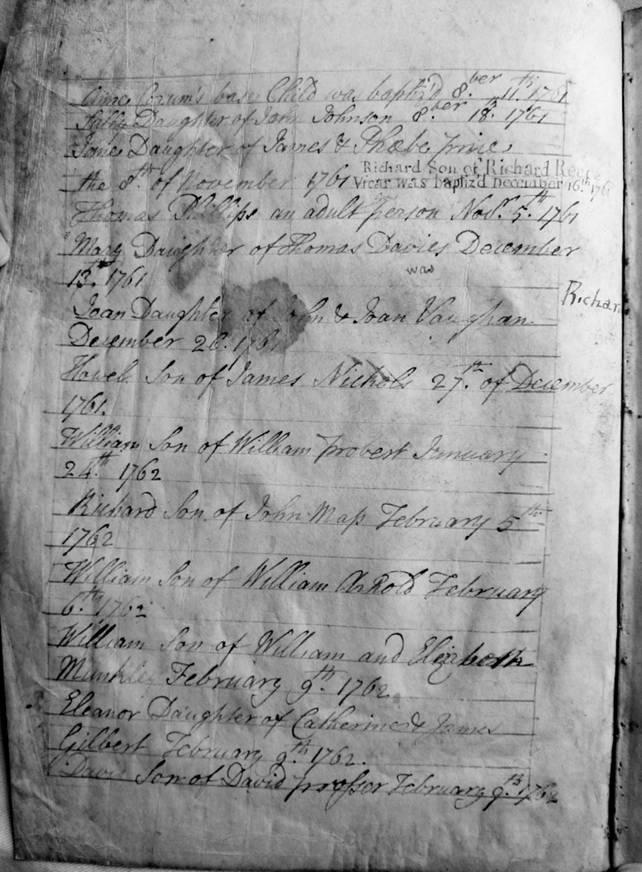 base Child was baptiz'd 8.ber 11.th 1761
Daughter of Johnson 8.ber 18. 1761
Jane Daughter of James & Phœbe price
the 8.th of November 1761
Richard Son of Richard
Vicar was baptiz'd December 16.th
Thomas Phillips an adult person Nov.r 5.th 1761
Mary Daughter of Thomas Davies December
13. 1761
was
Richar
Joan Daughter of John & Joan Vaughan
December 26. 1761
Howel Son of James Nichols 27.th of December
1761.
William Son of William probert January
24.th 1762
Richard Son of John Maſs February 5th
1762
William Son of William Arnold February
6.th 1762
William Son of William and Elizabeth
February 9.th 1762
Eleanor Daughter of Catherine & James
Gilbert February 9.th 1762.
David Son of David proſser February 9.th 1762